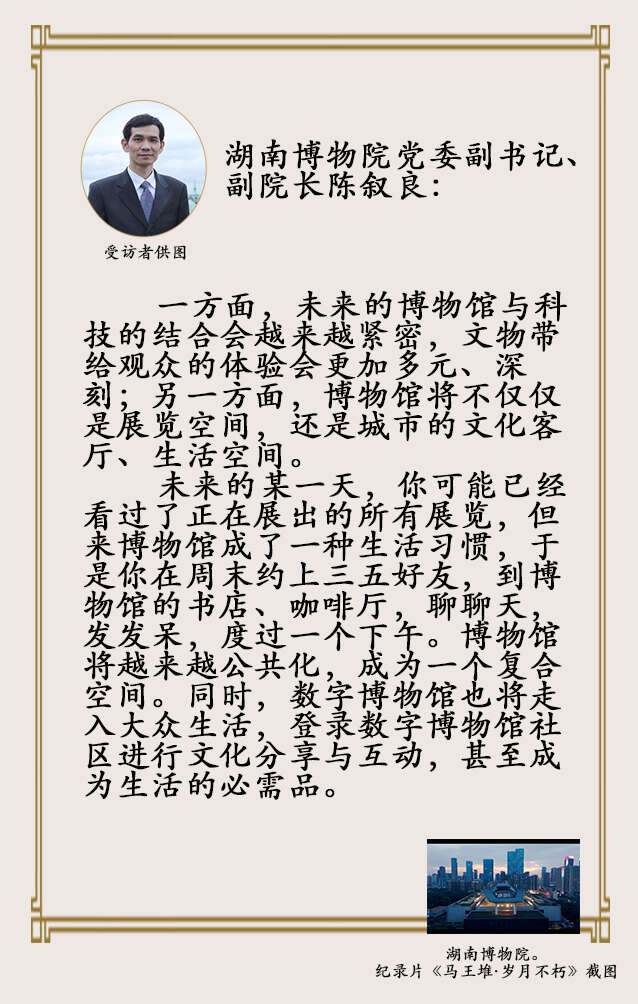 湖南博物院党委副书记、
副院长陈叙良：
受访者供图
一方面，未来的博物馆与科
技的结合会越来越紧密，文物带
给观众的体验会更加多元、深
刻；另一方面，博物馆将不仅仅
是展览空间，还是城市的文化客
厅、生活空间。
未来的某一天，你可能已经
看过了正在展出的所有展览，但
来博物馆成了一种生活习惯，于
是你在周末约上三五好友，到博
物馆的书店、咖啡厅，聊聊天，
发发呆，度过一个下午。博物馆
将越来越公共化，成为一个复合
空间。同时，数字博物馆也将走
入大众生活，登录数字博物馆社
区进行文化分享与互动，甚至成
为生活的必需品。
湖南博物院。
纪录片《马王堆·岁月不朽》截图